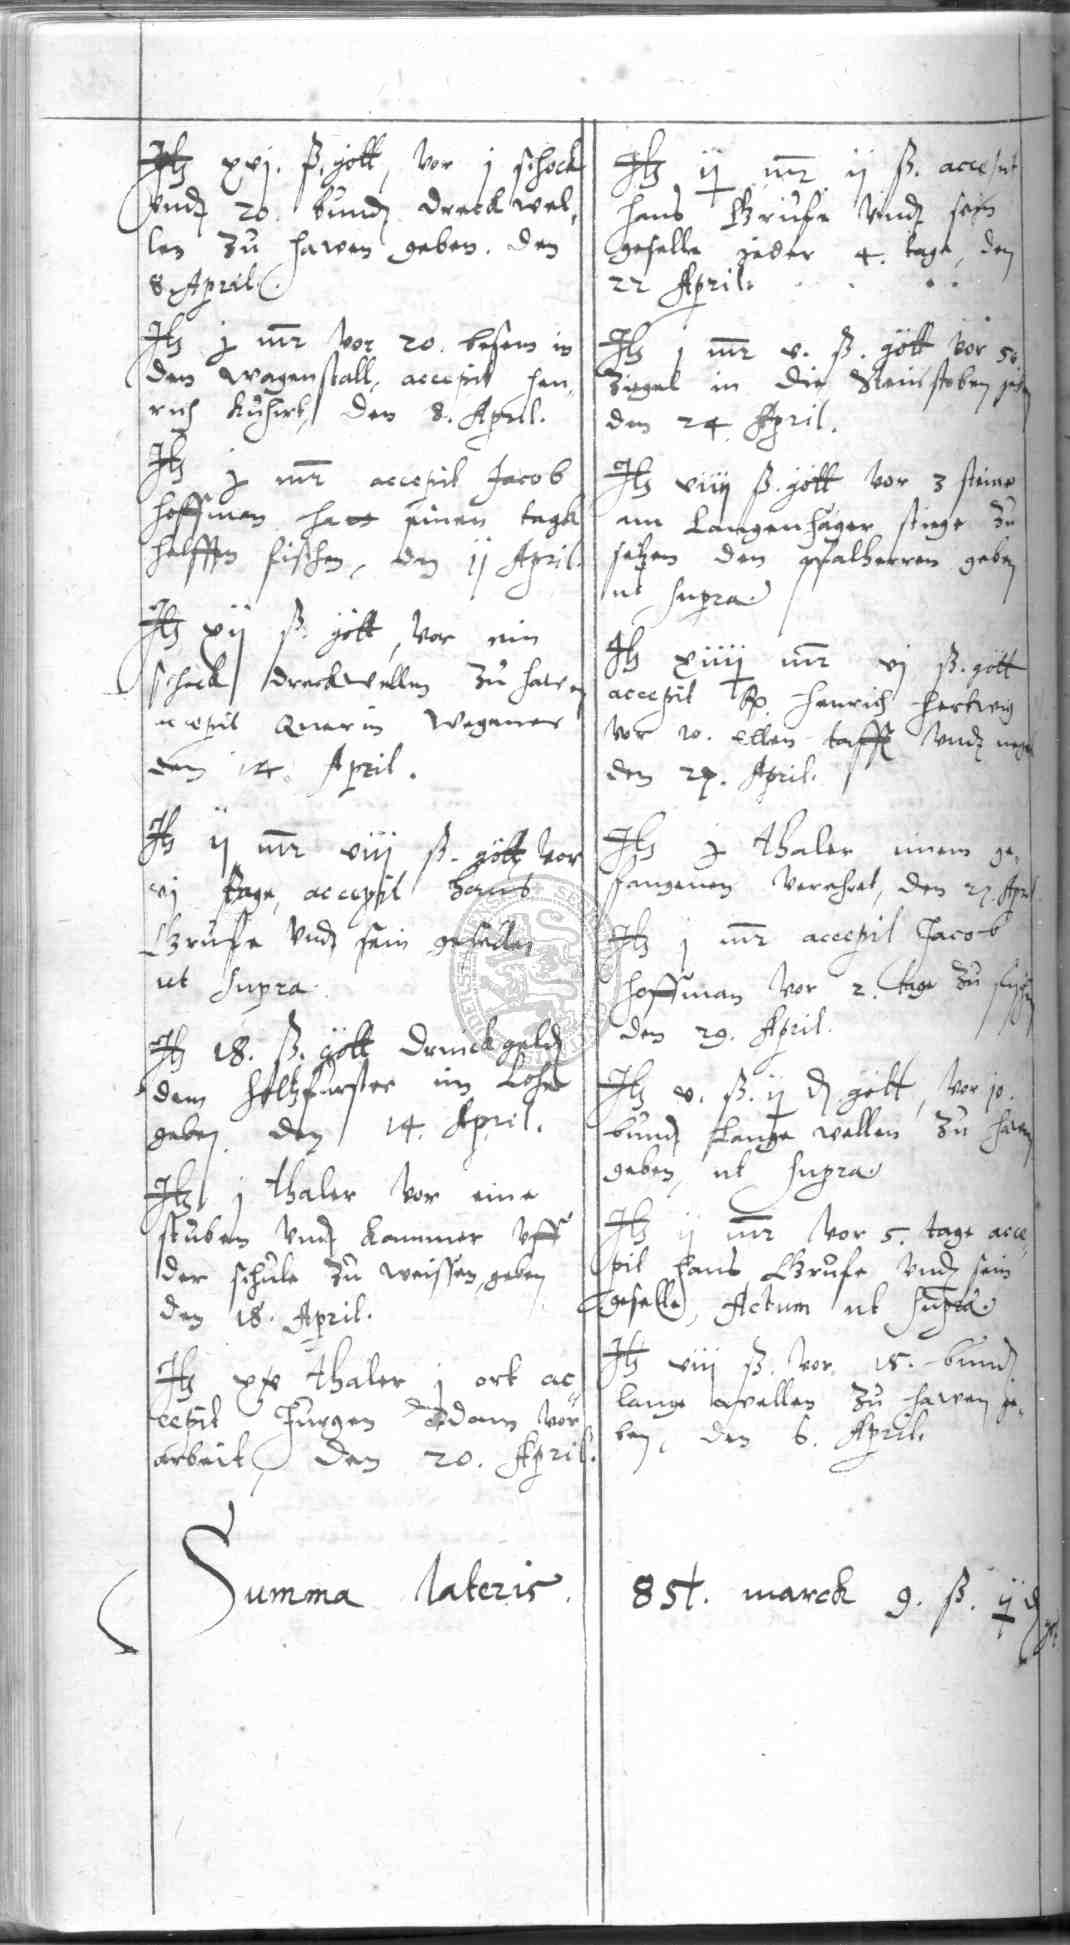 Itz xvj. ß. gött, vor j schock
vnd 20. bundt dreckwel-
len zu hawen geben. den
8. April.
Itz j mr vor 20. besem in
den wagenstall, accepit Hen-
rich Kuhirt, den 8. April.
Itz j mr accepit Jacob
Hoffman hatt einen tagk
helffen fischen, den ij April.
Itz xij ß. gött, vor ein
schock dreckwellen zu hawen
accepit Querin Wegener
den 14. April.
Itz ij mr viij ß. gött vor
vj tage, accepit Hans
Grufe vnd sein gesellen
ut supra.
Itz 18. ß. gött drinckgeldt
dem holtzfurster im Lohe
geben den 14. April.
Itz j thaler vor eine
stuben vnd kammer vff
der schule zu weissen, geben
den 18. April.
Itz xv thaler j ort ac-
cepit Jurgen Adam vor
arbeit, den 20. April.
Itz ij mr ij ß. accepit
Hans Grufe vnd sein
geselle jeder 4. tage, den
22 April.
Itz j mr v. ß. gött vor 50
ziegel in die Steinstoben
den 24. April.
Itz viiij ß. gött vor 3 steine
am Langenhager stiege zu
setzen den pfalherren geben
ut supra.
Itz xiiij mr vj ß. gött
accepit Henrich Hertwig
vor 10. ellen tafft vnd
den 27. April.
Itz j thaler einem ge-
fangenen verehret, den 27. April
Itz j mr accepit Jacob
Hoffman vor 2. tage zu
den 29. April.
Itz v. ß. ij d gött, vor 10.
bundt lange wellen zu hawen
geben, ut supra.
Itz ij mr vor 5. tage acce-
pit Hans Grufe vnd sein
geselle, Actum ut supra.
Itz viij ß. vor 15. bundt
lange wellen zu hawen ge-
ben, den 6. April.
Summa lateris. 851. marck 9. ß. ij d